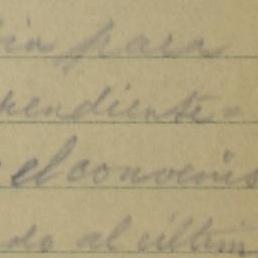 cia para
pendiente =
el convenio
do al últim